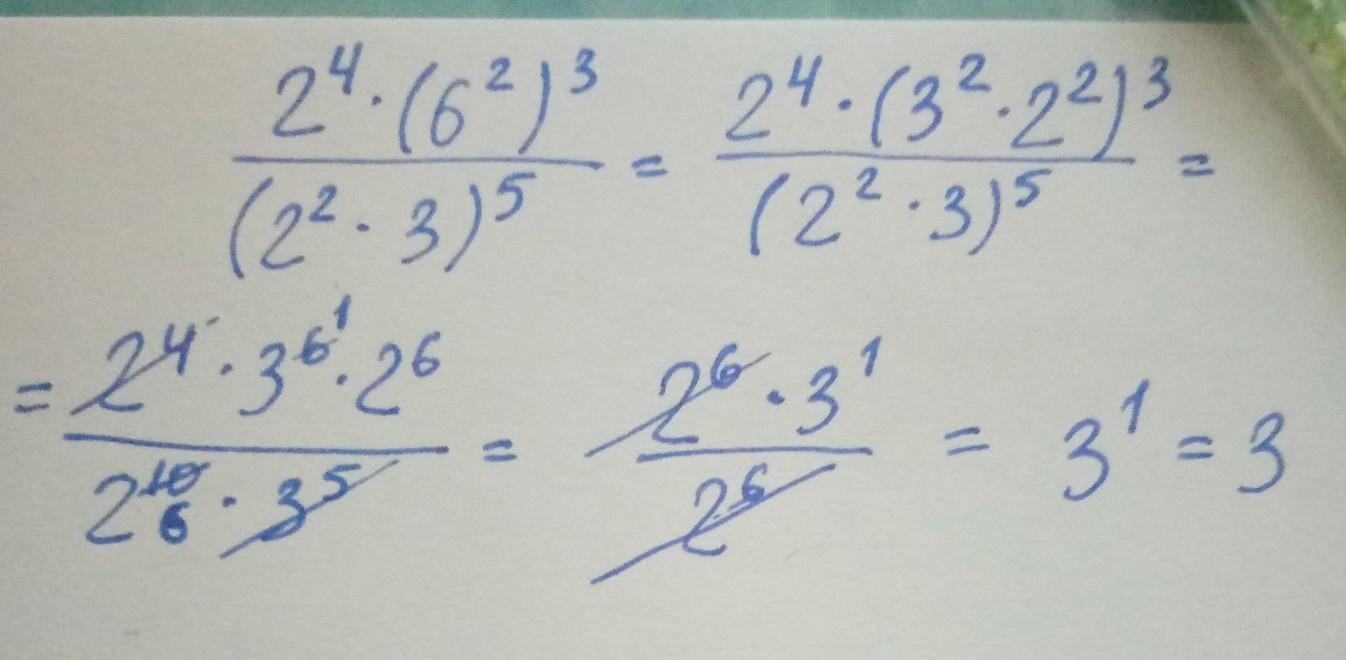 2⁴·(6²)³/(2²·3)⁵ = 2⁴·(3²·2²)³/(2²·3)⁵ =
= 2⁴·3⁶ ¹·2⁶/2¹⁰ ₆·3⁵ = 2⁶·3¹/2⁶ = 3¹ = 3